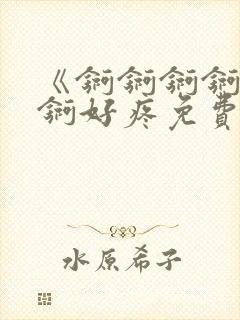 《锕锕锕锕
锕好疼免費
水原希子